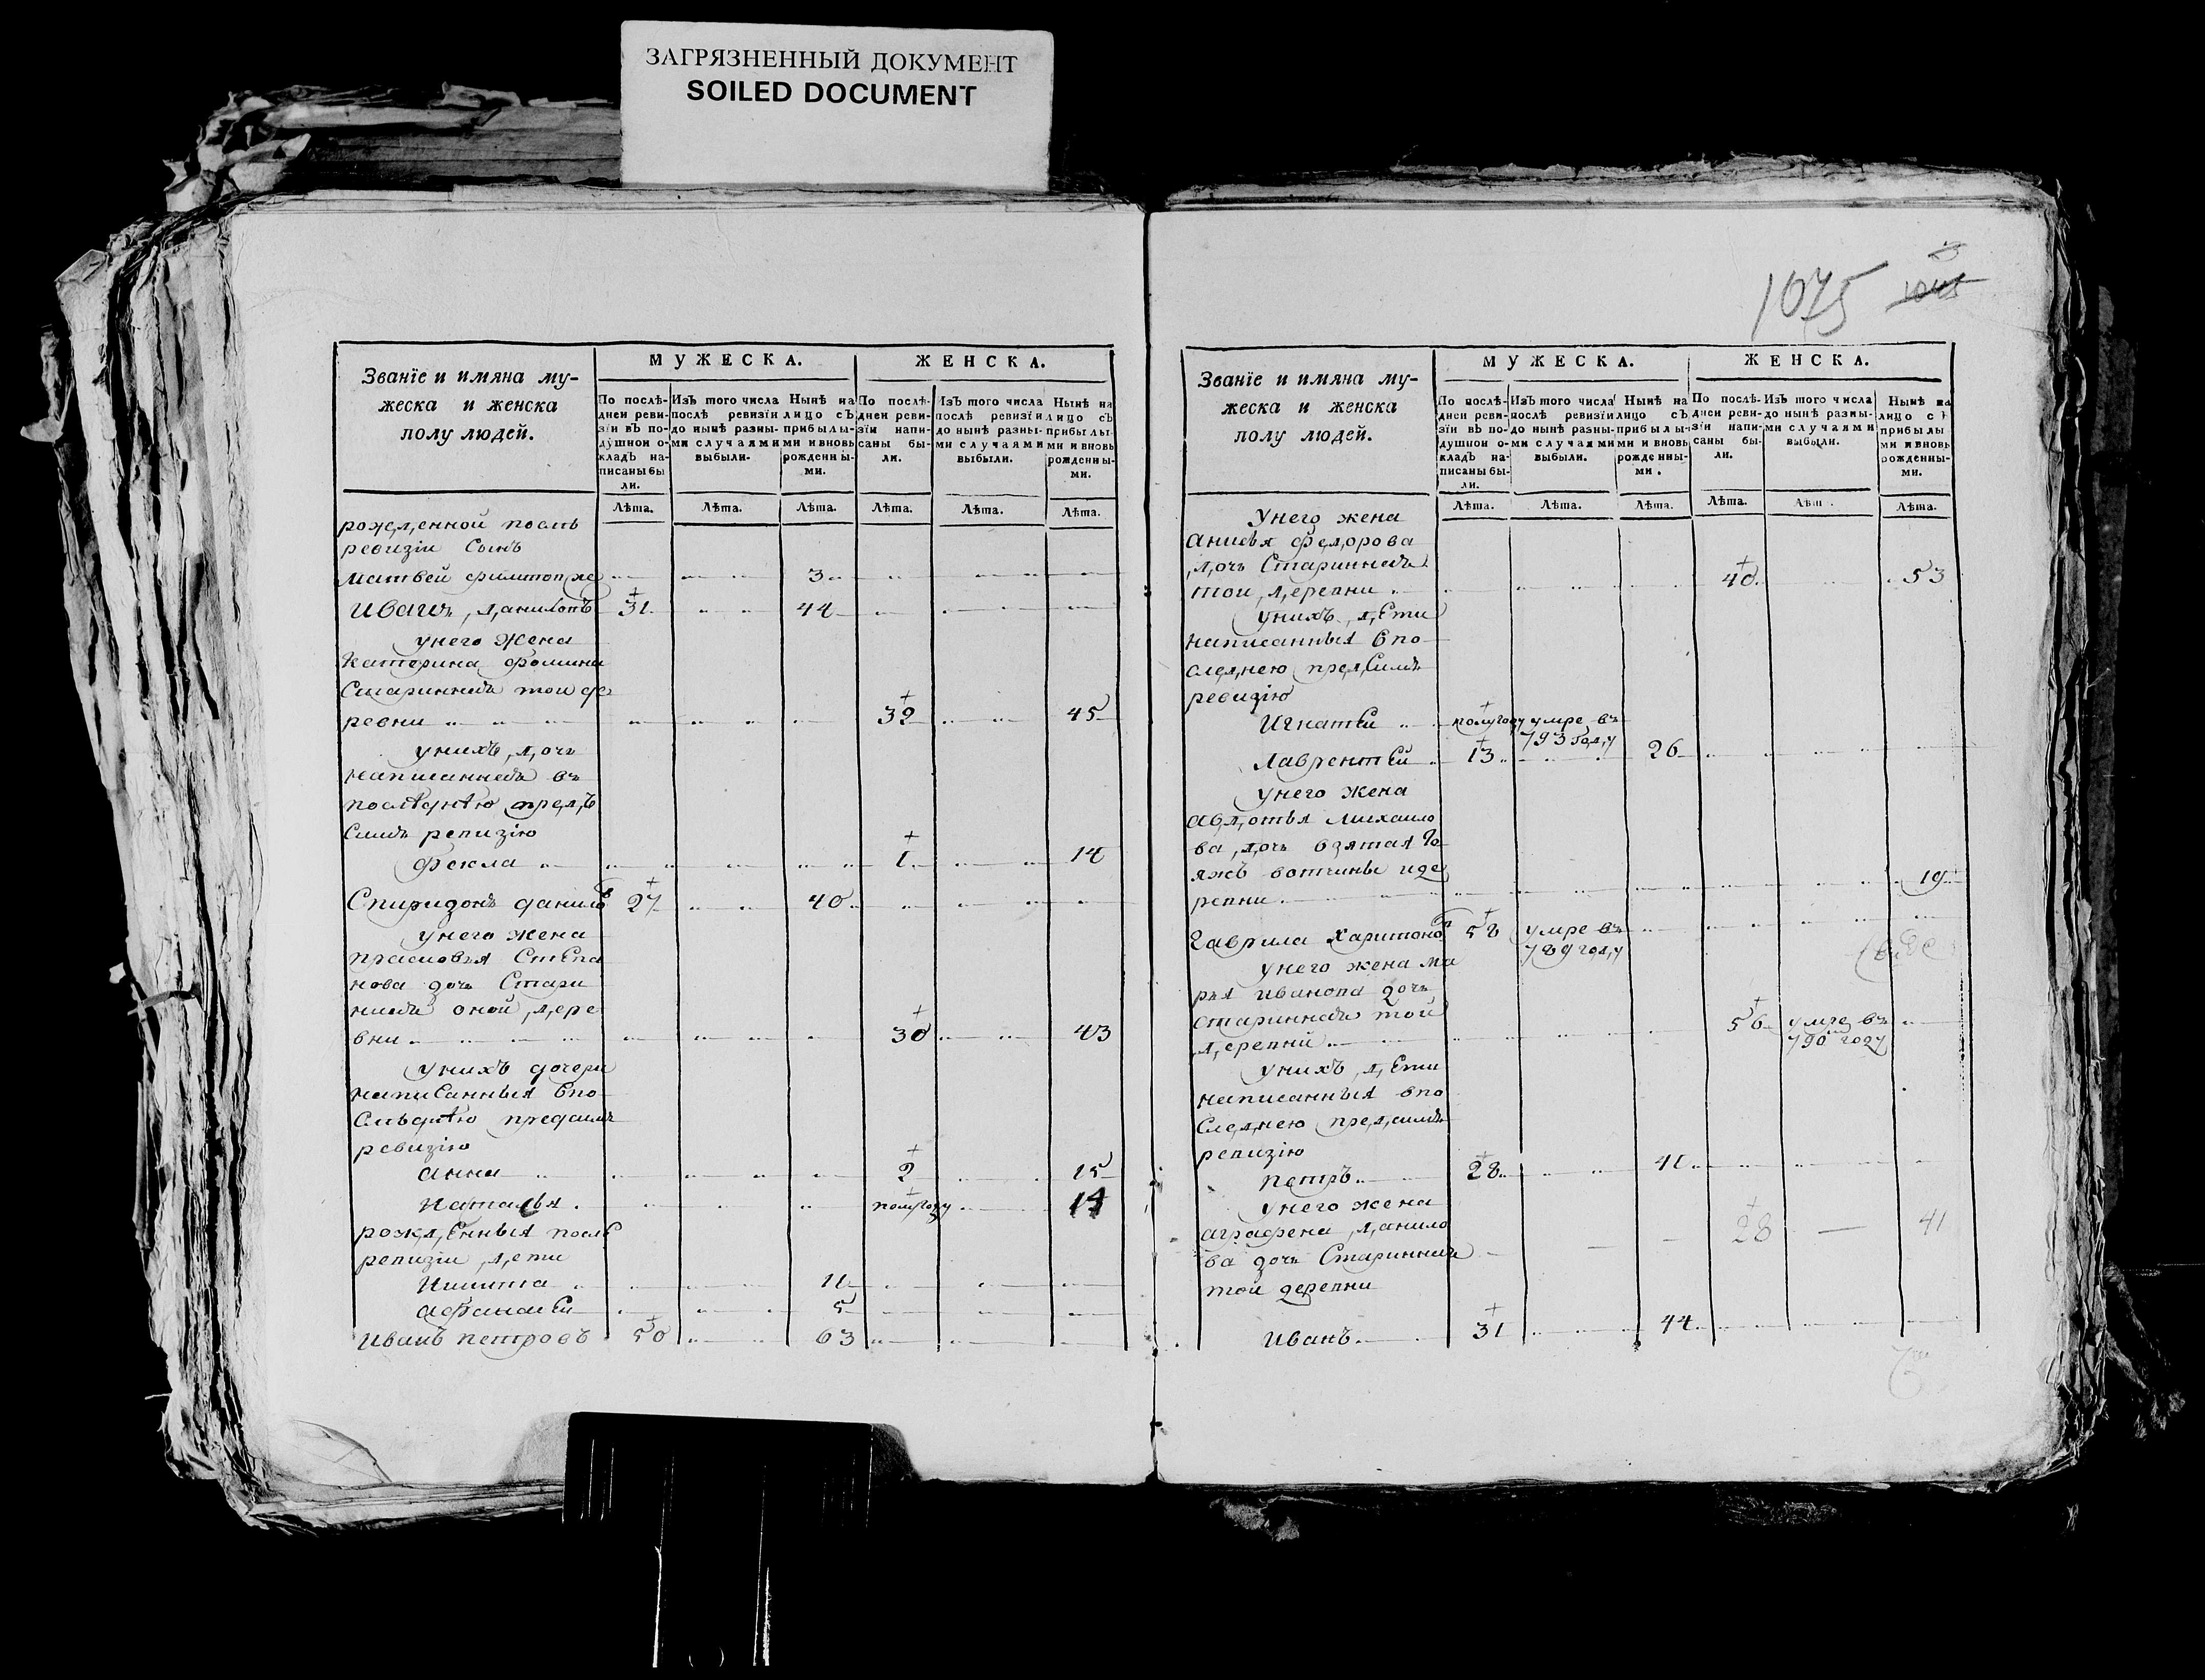 ЗАГРЯЗНЕННЫЙ ДОКУМЕНТ
SOILED DOCUMENT
1075
1045
Званїе и имяна му-
жеска и женска
полу людей.
МУЖЕСКА.
ЖЕНСКА.
По послѣ-
дней реви-
зїи въ по-
душной о-
кладъ на-
писаны бы
ли.
Изъ того числа
послѣ ревизїи
до нынѣ разны-
ми случаями
выбыли.
Нынѣ на
лицо съ
прибылы-
ми и вновь
рожденны-
ми.
По послѣ-
дней реви-
зїи напи-
саны бы-
ли.
Изъ того числа
послѣ ревизїи
до нынѣ разны-
ми случаями
выбыли.
Нынѣ на
лицо съ
прибылы-
ми и вновь
рожденны-
ми.
Лѣта. Лѣта. Лѣта. Лѣта. Лѣта. Лѣта.
рожденной послѣ
ревизіи сынъ
матвей 3
иванъ даниловъ 31 44
унего жена
катерина фомина
стариннай тои де
ревни 32 45
унихъ дочь
написаннай въ
последнѣю предъ
симъ ревизію
фекла 1 14
Спиридонъ данилов 27 40
унего жена
прасковья степа
нова дочь стари
ннай оной дере
вни 30 43
унихъ дочери
написанныя впо
следнѣю предсимъ
ревизію
анна 2 15
наталья полугоду 14
рожденныя послѣ
ревизіи дети
никита 11
афанасей 5
иванъ петровъ 50 63
Званїе и имяна му-
жеска и женска
полу людей.
МУЖЕСКА.
ЖЕНСКА.
По послѣ-
дней реви-
зїи въ по-
душной о-
кладъ на-
писаны бы-
ли.
Изъ того числа
послѣ ревизїи
до нынѣ разны-
ми случаями
выбыли.
Нынѣ на
лицо съ
прибылы-
ми и вновь
рожденны-
ми.
По послѣ-
дней реви-
зїи напи-
саны бы-
ли.
Изъ того числа
до нынѣ разны-
ми случаями
выбыли.
Нынѣ на
лицо съ
прибылы
ми и вновь
рожденны-
ми.
Лѣта. Лѣта. Лѣта. Лѣта. Лѣт. Лѣта.
унего жена
анисья федорова
дочь стариннай
тои деревни 40 53
унихъ дети
написанныя впо
следнею предсимъ
ревизію
игнатей полугоду умре въ
793 году
лаврентей 13 26
унего жена
авдотья михаило
ва дочь взятая то
яжъ вотчины иде
ревни 19
гаврила харитоно 58 умре въ
789 году
унего жена ма
рья иванова дочь
стариннай той
деревни 56 умре въ
790 году
унихъ дети
написанныя впо
следнею предсимъ
ревизію
петръ 28 41
унего жена
аграфена данило
ва дочь стариннай 28 41
той деревни
иванъ 31 44